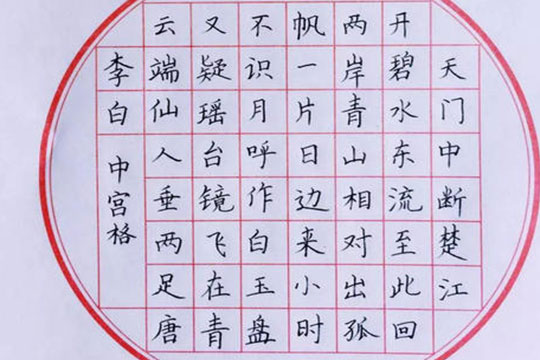 天门中断楚江
开碧水东流至此回
两岸青山相对出孤
帆一片日边来小时
不识月呼作白玉盘
又疑瑶台镜飞在青
云端仙人垂两足唐
李白
中宫格